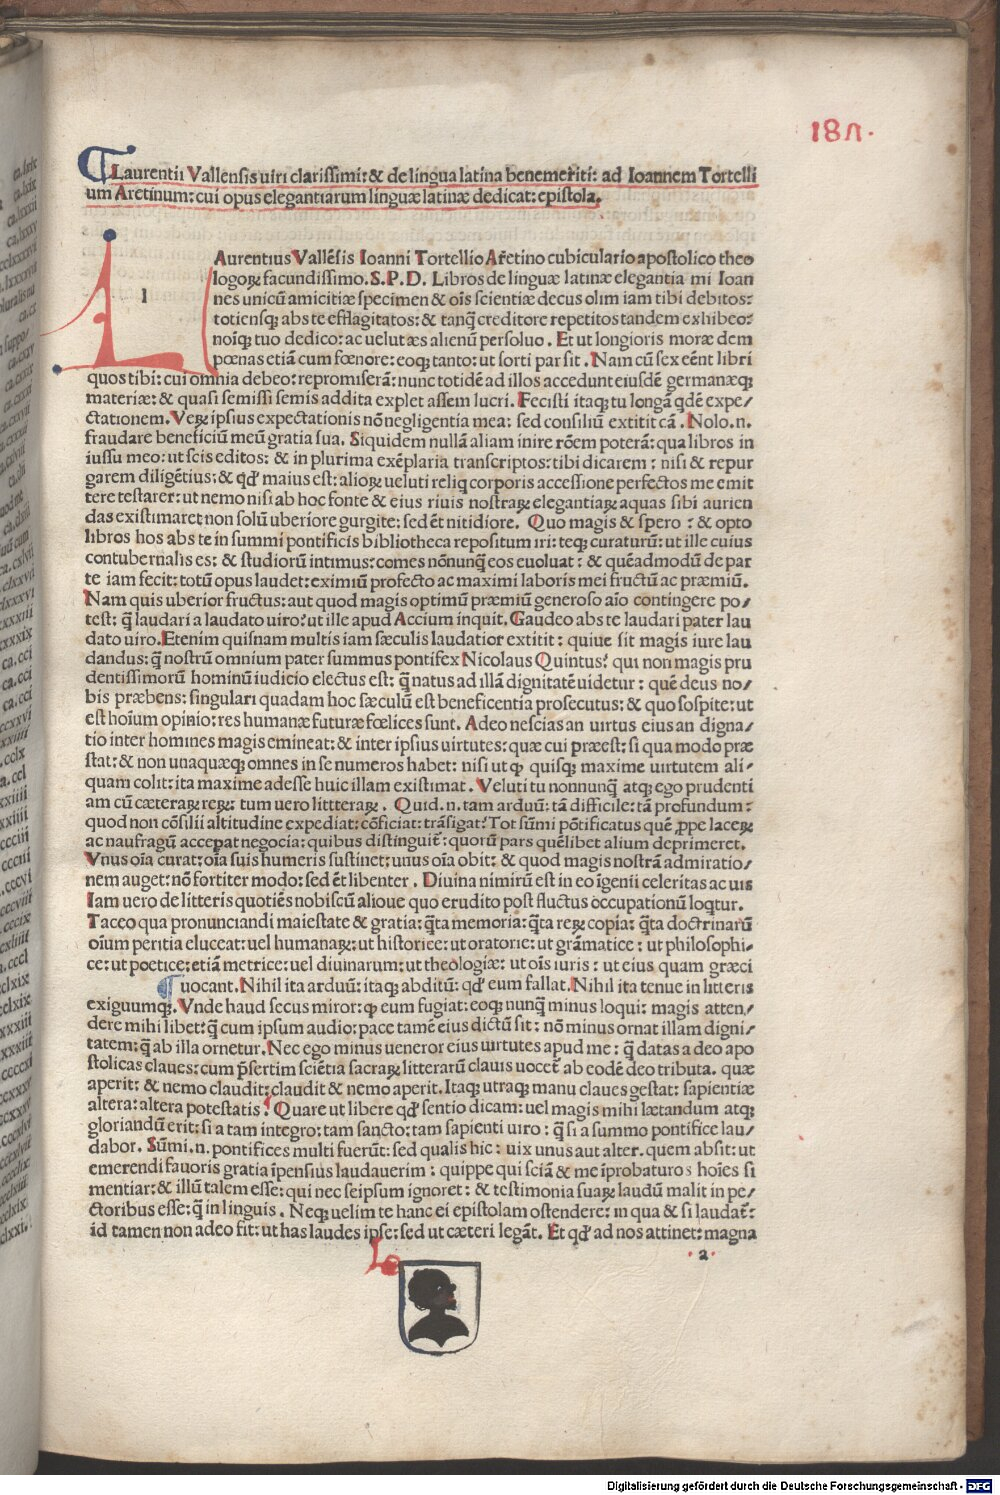 18Λ.
Laurentii Vallensis uiri clarissimi: & de lingua latina benemeriti: ad Ioannem Tortelli
um Aretinum: cui opus elegantiarum linguæ latinæ dedicat: epistola.
LAurentius Valleñsis Ioanni Tortellio Aretino cubiculario apostolico theo
logoꝝ facundissimo. S.P.D. Libros de linguæ latinæ elegantia mi Ioan
nes unicũ amicitiæ specimen & oĩs scientiæ decus olim iam tibi debitos:
totiensqꝫ abs te efflagitatos: & tanq̃ creditore repetitos tandem exhibeo:
noĩqꝫ tuo dedico: ac uelut æs alienũ persoluo. Et ut longioris moræ dem
pœnas etiã cum fœnore: eoqꝫ tanto: ut sorti par sit. Nam cũ sex eẽnt libri
quos tibi: cui omnia debeo: repromiserã: nunc totidẽ ad illos accedunt eiusdẽ germanæqꝫ
materiæ: & quasi semissi semis addita explet assem lucri. Fecisti itaqꝫ tu longã qdẽ expe/
ctationem. Veꝝ ipsius expectationis nõ negligentia mea: sed consiliũ extitit cã. Nolo .n.
fraudare beneficiũ meũ gratia sua. Siquidem nullã aliam inire rõem poterã: qua libros in
iussu meo: ut scis editos: & in plurima exẽplaria transcriptos: tibi dicarem: nisi & repur
garem diligẽtius: & qď maius est: alioꝝ ueluti reliq corporis accessione perfectos me emit
tere testarer: ut nemo nisi ab hoc fonte & eius riuis nostraꝝ elegantiaꝝ aquas sibi aurien
das existimaret non solũ uberiore gurgite: sed ẽt nitidiore. Quo magis & spero: & opto
libros hos abs te in summi pontificis bibliotheca repositum iri: teqꝫ curaturũ: ut ille cuius
contubernalis es: & studiorũ intimus: comes nõnunq̃ eos euoluat: & quẽadmodũ de par
te iam fecit: totũ opus laudet: eximiũ profecto ac maximi laboris mei fructũ ac præmiũ.
Nam quis uberior fructus: aut quod magis optimũ præmiũ generoso aĩo contingere po/
test: q̃ laudari a laudato uiro? ut ille apud Accium inquit. Gaudeo abs te laudari pater lau
dato uiro. Etenim quisnam multis iam sæculis laudatior extitit: quiue sit magis iure lau
dandus: q̃ nostrũ omnium pater summus pontifex Nicolaus Quintus? qui non magis pru
dentissimorũ hominũ iudicio electus est: q̃ natus ad illã dignitatẽ uidetur: quẽ deus no/
bis præbens: singulari quadam hoc sæculũ est beneficentia prosecutus: & quo sospite: ut
est hoĩum opinio: res humanæ futuræ fœlices sunt. Adeo nescias an uirtus eius an digna/
tio inter homines magis emineat: & inter ipsius uirtutes: quæ cui præest: si qua modo præ
stat: & non unaquæqꝫ omnes in se numeros habet: nisi ut ꝙ quisqꝫ maxime uirtutem ali/
quam colit: ita maxime adesse huic illam existimat. Veluti tu nonnunq̃ atqꝫ ego prudenti
am cũ cæteraꝝ reꝝ: tum uero littteraꝝ. Quid .n. tam arduũ: tã difficile: tã profundum:
quod non cõsilii altitudine expediat: cõficiat: trãsigat? Tot sũmi põtificatus quẽ ꝓpe laceꝝ
ac naufragũ acceꝑat negocia: quibus distinguiť: quorũ pars quẽlibet alium deprimeret.
Vnus oĩa curat: oĩa suis humeris sustinet: unus oĩa obit: & quod magis nostrã admiratio/
nem auget: nõ fortiter modo: sed ẽt libenter. Diuina nimirũ est in eo ĩgenii celeritas ac uis
Iam uero de litteris quotiẽs nobiscũ alioue quo erudito post fluctus occupationũ loqtur.
Taceo qua pronunciandi maiestate & gratia: q̃ta memoria: q̃ta reꝝ copia: q̃ta doctrinarũ
oĩum peritia eluceat: uel humanaꝝ: ut historice: ut oratorie: ut grãmatice: ut philosophi/
ce: ut poetice: etiã metrice: uel diuinarum: ut theologiæ: ut oĩs iuris: ut eius quam græci
uocant. Nihil ita arduũ: itaqꝫ abditũ: qď eum fallat. Nihil ita tenue in litteris
exiguumqꝫ. Vnde haud secus miror: ꝙ eum fugiat: eoqꝫ nunq̃ minus loqui: magis atten/
dere mihi libet: q̃ cum ipsum audio: pace tamẽ eius dictũ sit: nõ minus ornat illam digni/
tatem: q̃ ab illa ornetur. Nec ego minus ueneror eius uirtutes apud me: q̃ datas a deo apo
stolicas claues: cum p̃sertim sciẽtia sacraꝝ litterarũ clauis uoceť ab eodẽ deo tributa. quæ
aperit: & nemo claudit: claudit & nemo aperit. Itaqꝫ utraqꝫ manu claues gestat: sapientiæ
altera: altera potestatis? Quare ut libere qď sentio dicam: uel magis mihi lætandum atqꝫ
gloriandũ erit: si a tam integro: tam sancto: tam sapienti uiro: q̃ si a summo pontifice lau/
dabor. Sũmi .n. pontifices multi fuerũt: sed qualis hic: uix unus aut alter. quem absit: ut
emerendi fauoris gratia ĩpensius laudauerim: quippe qui sciã & me ĩprobaturos hoĩes si
mentiar: & illũ talem esse: qui nec seipsum ignoret: & testimonia suaꝝ laudũ malit in pe/
ctoribus esse: q̃ in linguis. Neqꝫ uelim te hanc ei epistolam ostendere: in qua & si laudať:
id tamen non adeo fit: ut has laudes ipse: sed ut cæteri legãt. Et qď ad nos attinet: magna
.2.
Digitalisierung gefördert durch die Deutsche Forschungsgemeinschaft - DFG